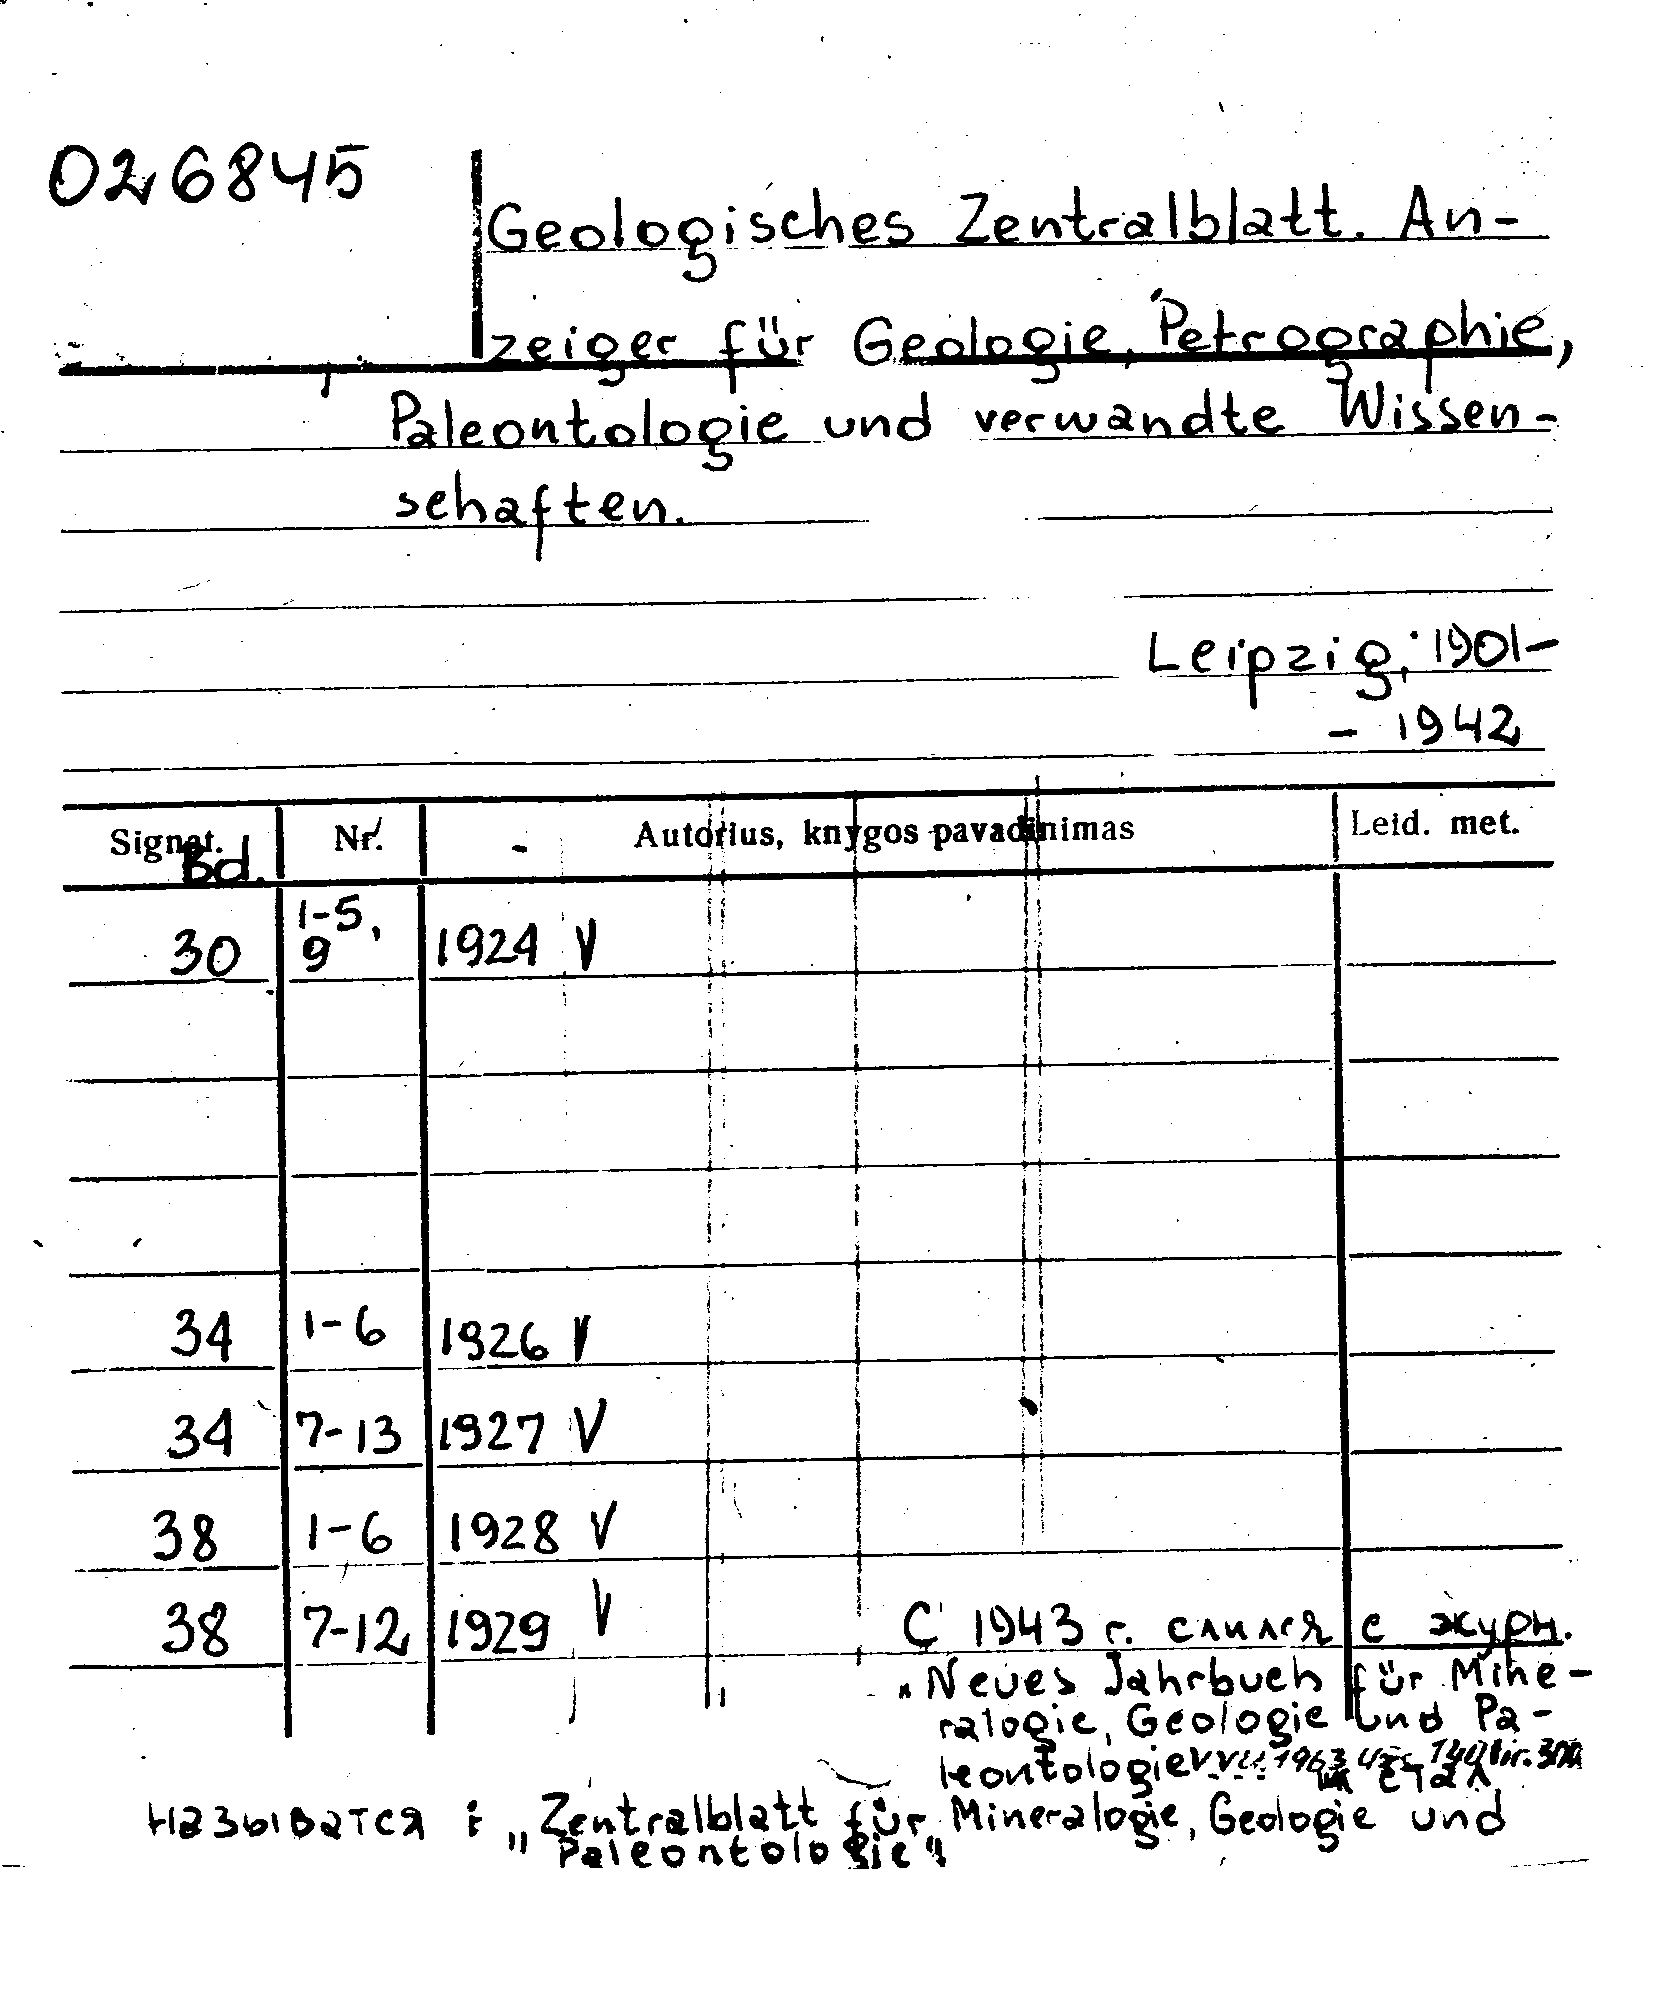 026845
Geologisches Zentralblatt. An-
zeiger für Geologie, Petrographie,
Paleontologie und verwandte Wissen-
schaften.
Leipzig, 1901-
- 1942
Signat. Nr. Autorius, knygos pavadinimas Leid. met.
Bd.
30 1-5, 9 1924 V
34 1-6 1926 V
34 7-13 1927 V
38 1-6 1928 V
38 7-12 1929 V
С 1943 г. слился с журн.
"Neues Jahrbuch für Mine-
ralogie, Geologie und Pa-
leontologie
и стал
называтся : „Zentralblatt für Mineralogie, Geologie und
Paleontologie"